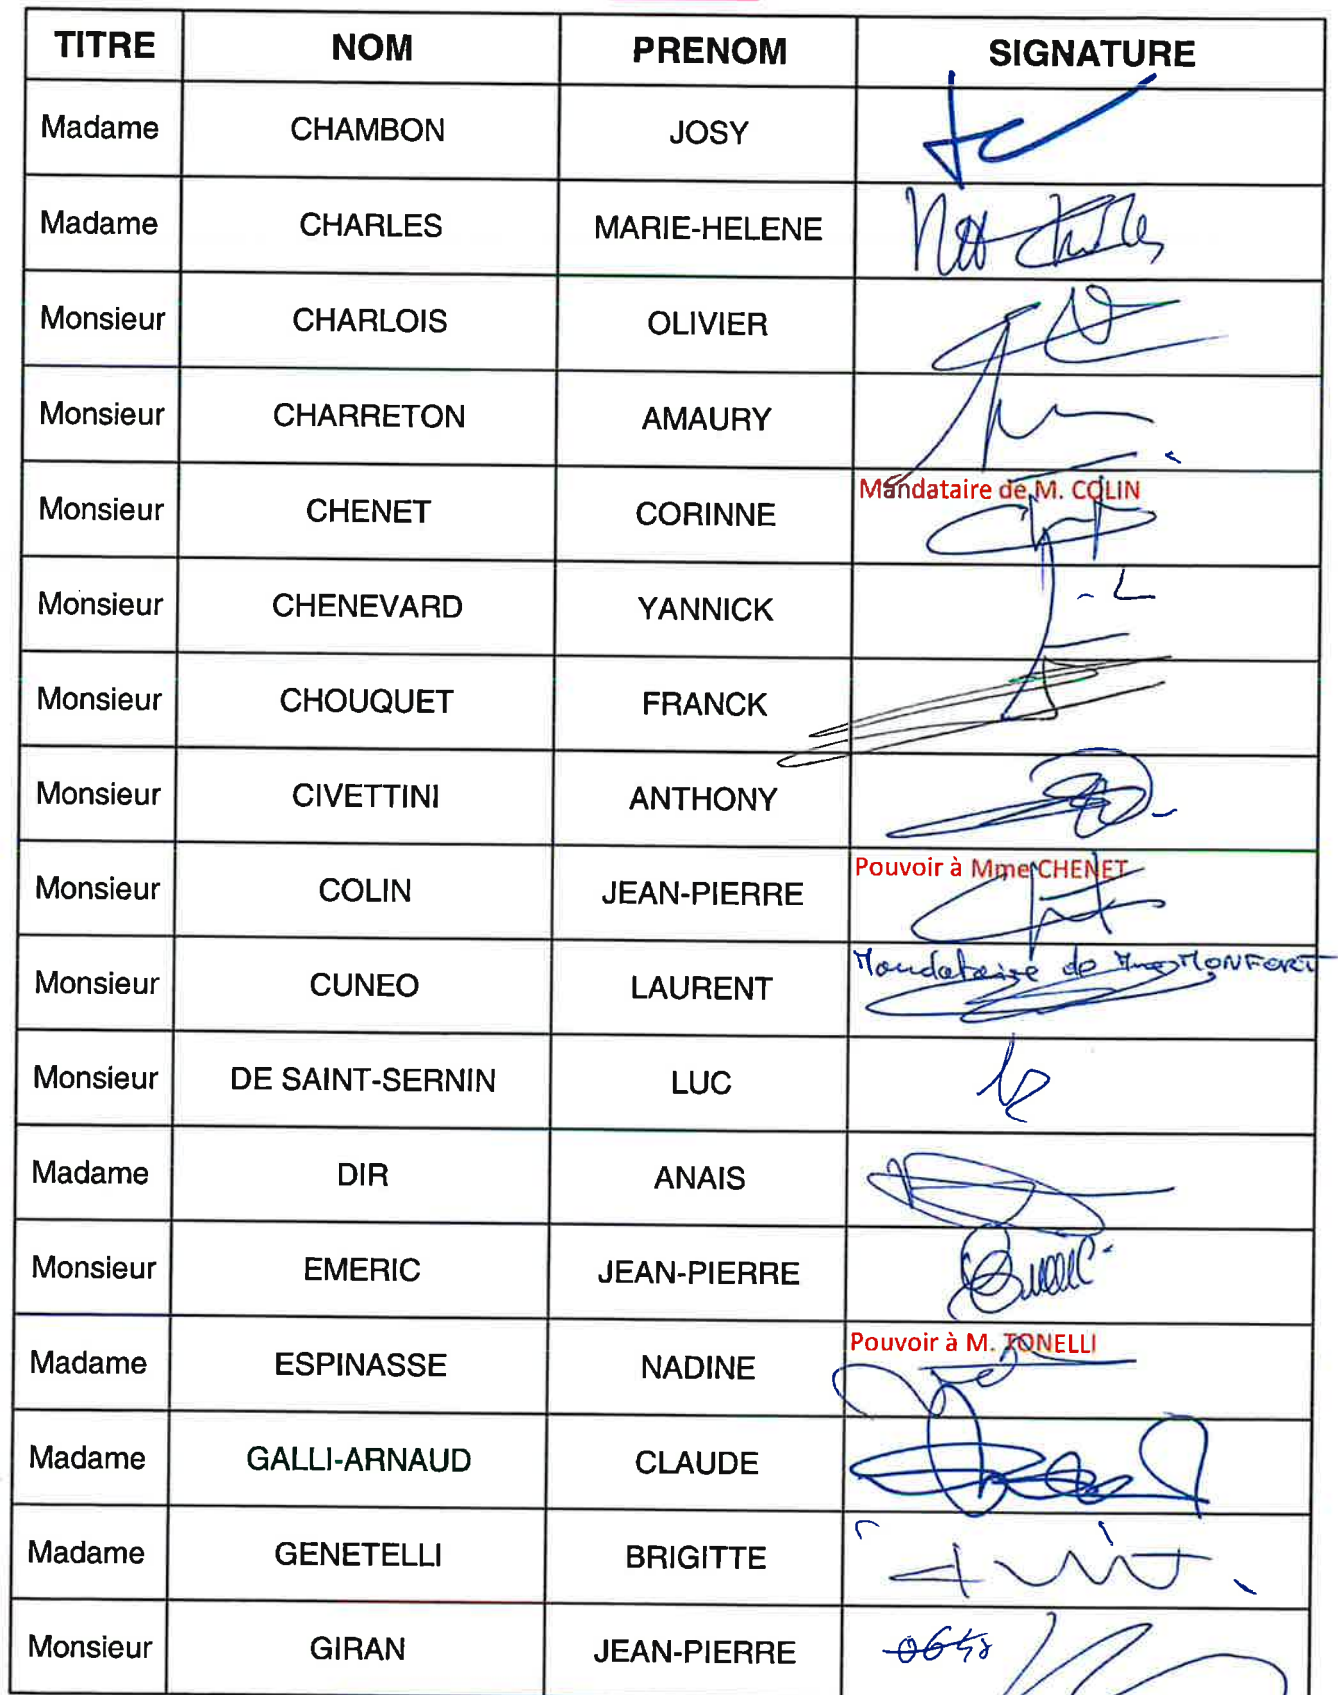 TITRE NOM PRENOM SIGNATURE
Madame CHAMBON JOSY
Madame CHARLES MARIE-HELENE
Monsieur CHARLOIS OLIVIER
Monsieur CHARRETON AMAURY
Monsieur CHENET CORINNE Mandataire de M. COLIN
Monsieur CHENEVARD YANNICK
Monsieur CHOUQUET FRANCK
Monsieur CIVETTINI ANTHONY
Monsieur COLIN JEAN-PIERRE Pouvoir à Mme CHENET
Monsieur CUNEO LAURENT Mandataire de Mme MONFORT
Monsieur DE SAINT-SERNIN LUC
Madame DIR ANAIS
Monsieur EMERIC JEAN-PIERRE
Madame ESPINASSE NADINE Pouvoir à M. TONELLI
Madame GALLI-ARNAUD CLAUDE
Madame GENETELLI BRIGITTE
Monsieur GIRAN JEAN-PIERRE